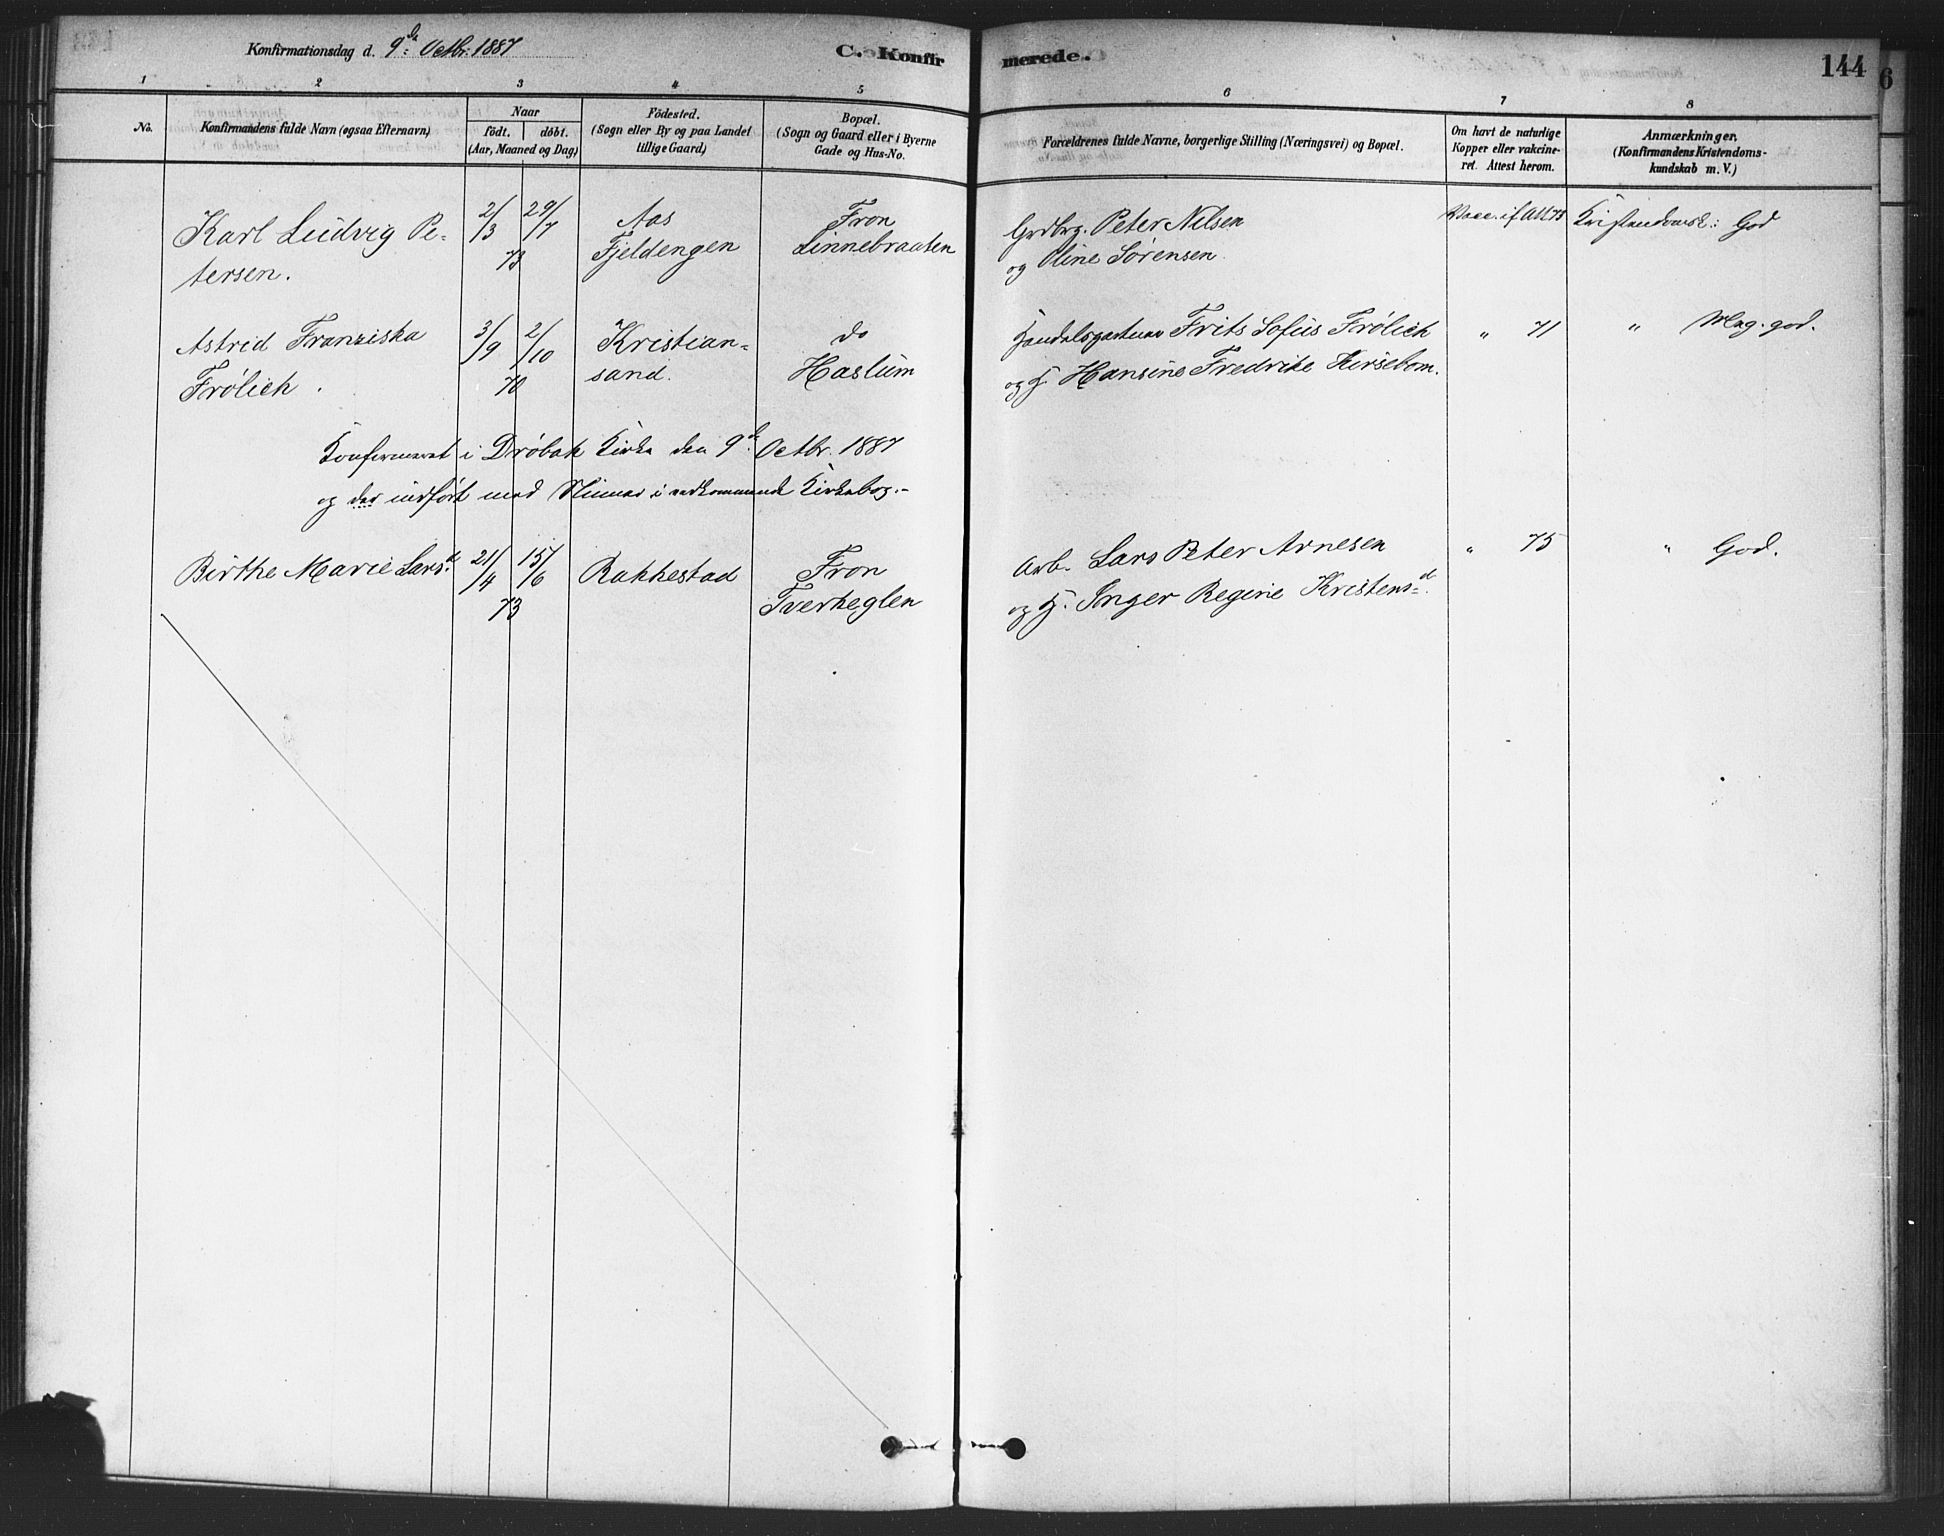 Konfirmationsdag d. 9de Octbr. 1887
C. Konfirmerede.
144
6
1 2 3 4 5 6 7 8
No.
Konfirmandens fulde Navn (ogsaa Efternavn)
Naar
födt. | döbt.
(Aar, Maaned og Dag)
Födested.
(Sogn eller By og paa Landet
tillige Gaard)
Bopæl.
(Sogn og Gaard eller i Byerne
Gade og Hus-No.
Forældrenes fulde Navne, borgerlige Stilling (Næringsvei) og Bopæl.
Om havt de naturlige
Kopper eller vakcine-
ret. Attest herom.
Anmærkninger.
(Konfirmandens Kristendoms-
kundskab m. V.)
Karl Ludvig Pe-
tersen.
2/3 29/7
73
Aas
Fjeldengen
Fron
Linnebraaten
Grdbrg. Peter Nilsen
og Oline Sørensen
Vacc. if Att 75
Kristendomsk: God
Astrid Franziska
Frølich.
3/9 2/10
70
Kristian=
sand.
do
Haslum
Handelsgartner Frits Sofus Frølich
og H. Hansine Fredrike Kirsebom.
" 71
" Meg. god.
Konfirmeret i Drøbak Kirke den 9de Octbr. 1887
og der indført med Numer i vedkommende Kirkebog.-
Birthe Marie Larsd.
21/4 15/6
73
Rakkestad
Fron
Tverheglen
Arb. Lars Peter Arnesen
og H. Inger Regine Kristensd.
" 75
" God.